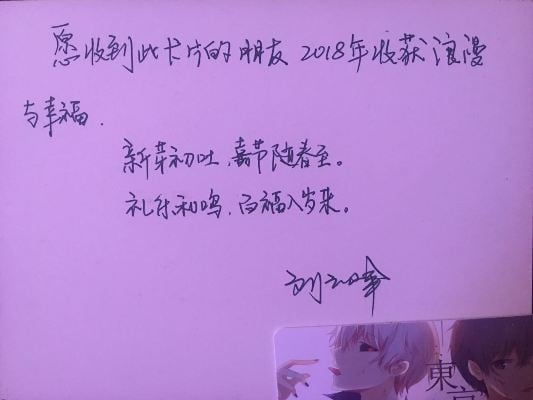 愿收到此卡片的朋友 2018年收获浪漫
与幸福.
新芽初吐,嘉节随春至。
礼乐和鸣,百福入岁来。
東京